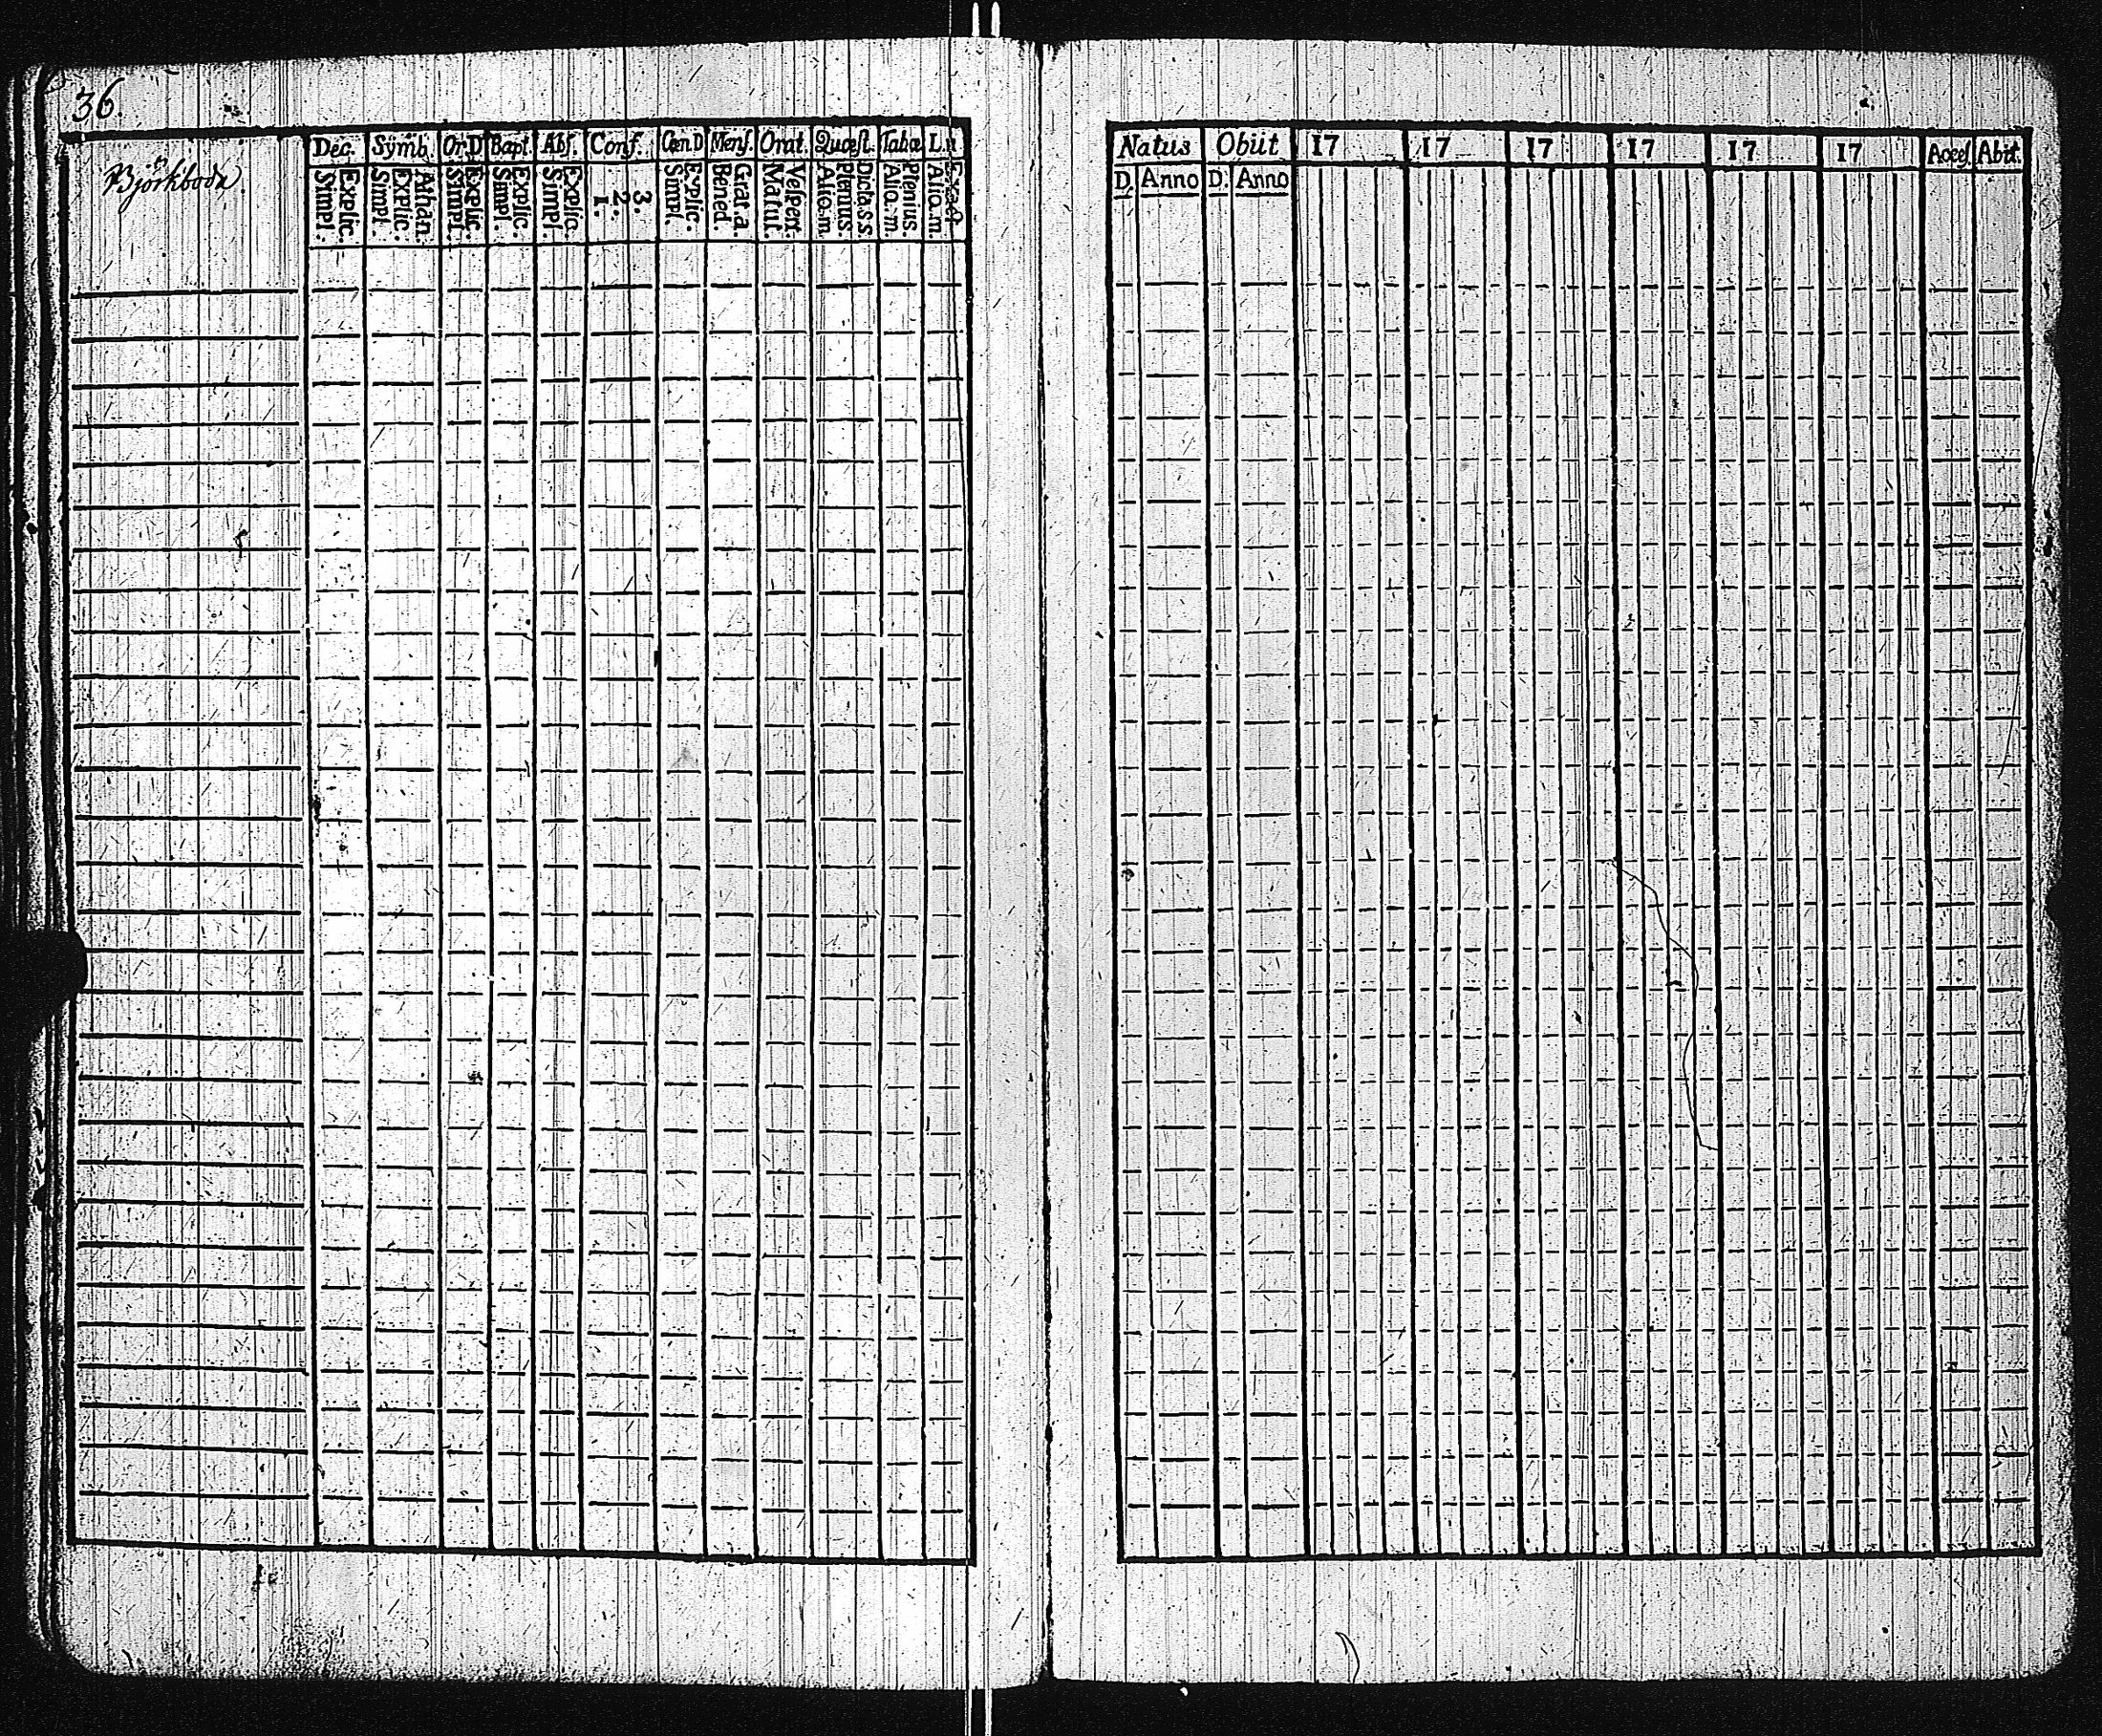 36.
Björkboda.
Dec. Symb. Or.D Bapt. Abs. Conf. Cœn.D Mens. Orat. Quæst. Tabæ L.n
Explic. Simpl.
Athan. Explic. Simpl.
Explic. Simpl.
Explic. Simpl.
Explic. Simpl.
3. 2. 1.
Explic. Simpl.
Grat.a. Bened.
Vespert. Matut.
Dicta.s.s. Plenius. Alio.m.
Plenius. Alio.m.
Exact Alio.m.
Natus Obiit 17 17 17 17 17 17 Acces. Abit.
D. Anno D. Anno